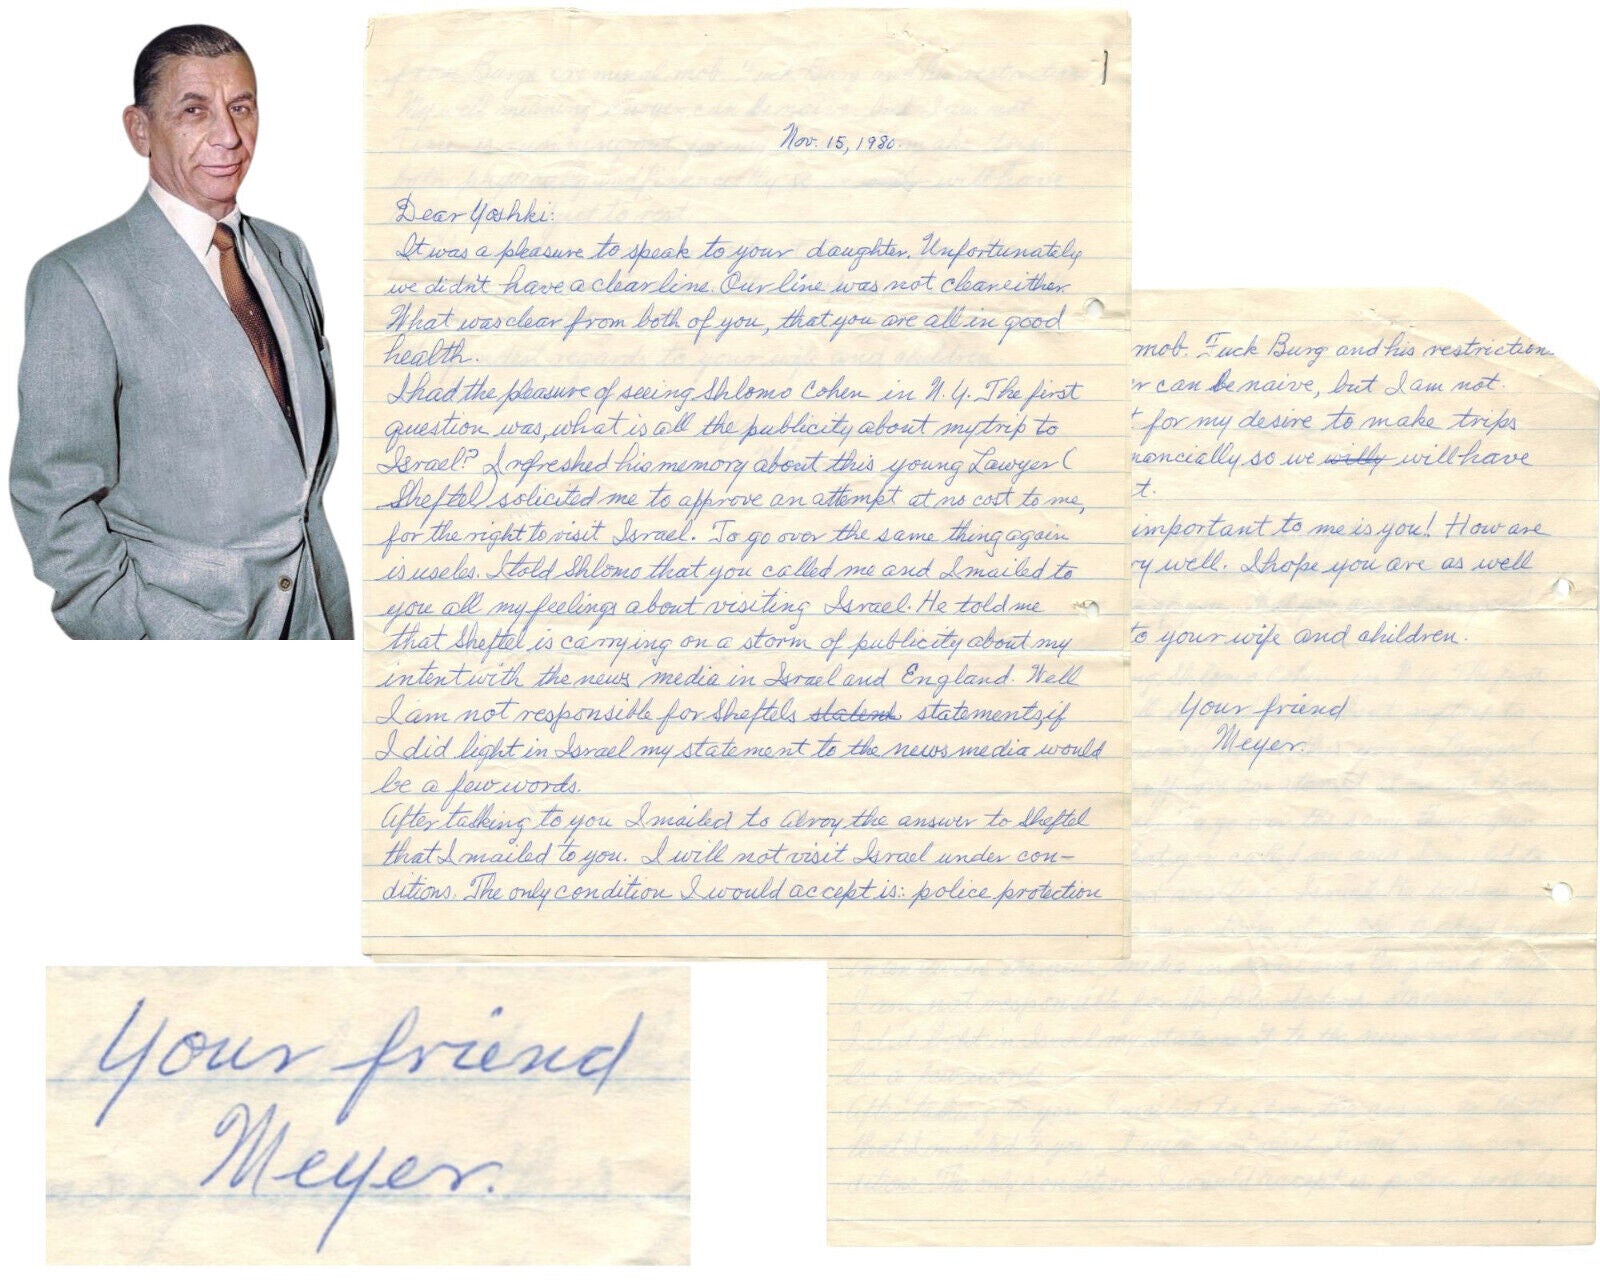 Nov. 15, 1980.
Dear Yoshki:
It was a pleasure to speak to your daughter. Unfortunately
we didn't have a clear line. Our line was not clear either.
What was clear from both of you, that you are all in good
health.
I had the pleasure of seeing Shlomo Cohen in N.Y. The first
question was, what is all the publicity about my trip to
Israel? I refreshed his memory about this young Lawyer (
Sheftel) solicited me to approve an attempt at no cost to me,
for the right to visit Israel. To go over the same thing again
is useles. I told Shlomo that you called me and I mailed to
you all my feelings about visiting Israel. He told me
that Sheftel is carrying on a storm of publicity about my
intent with the news media in Israel and England. Well
I am not responsible for Sheftels statements, if
I did light in Israel my statement to the news media would
be a few words.
After talking to you I mailed to Alroy the answer to Sheftel
that I mailed to you. I will not visit Israel under con-
ditions. The only condition I would accept is: police protection
mob. Fuck Burg and his restriction
can be naive, but I am not.
for my desire to make trips
nancially so we willy will have
t.
important to me is you! How are
ry well. I hope you are as well
to your wife and children.
Your friend
Meyer.
Your friend
Meyer.